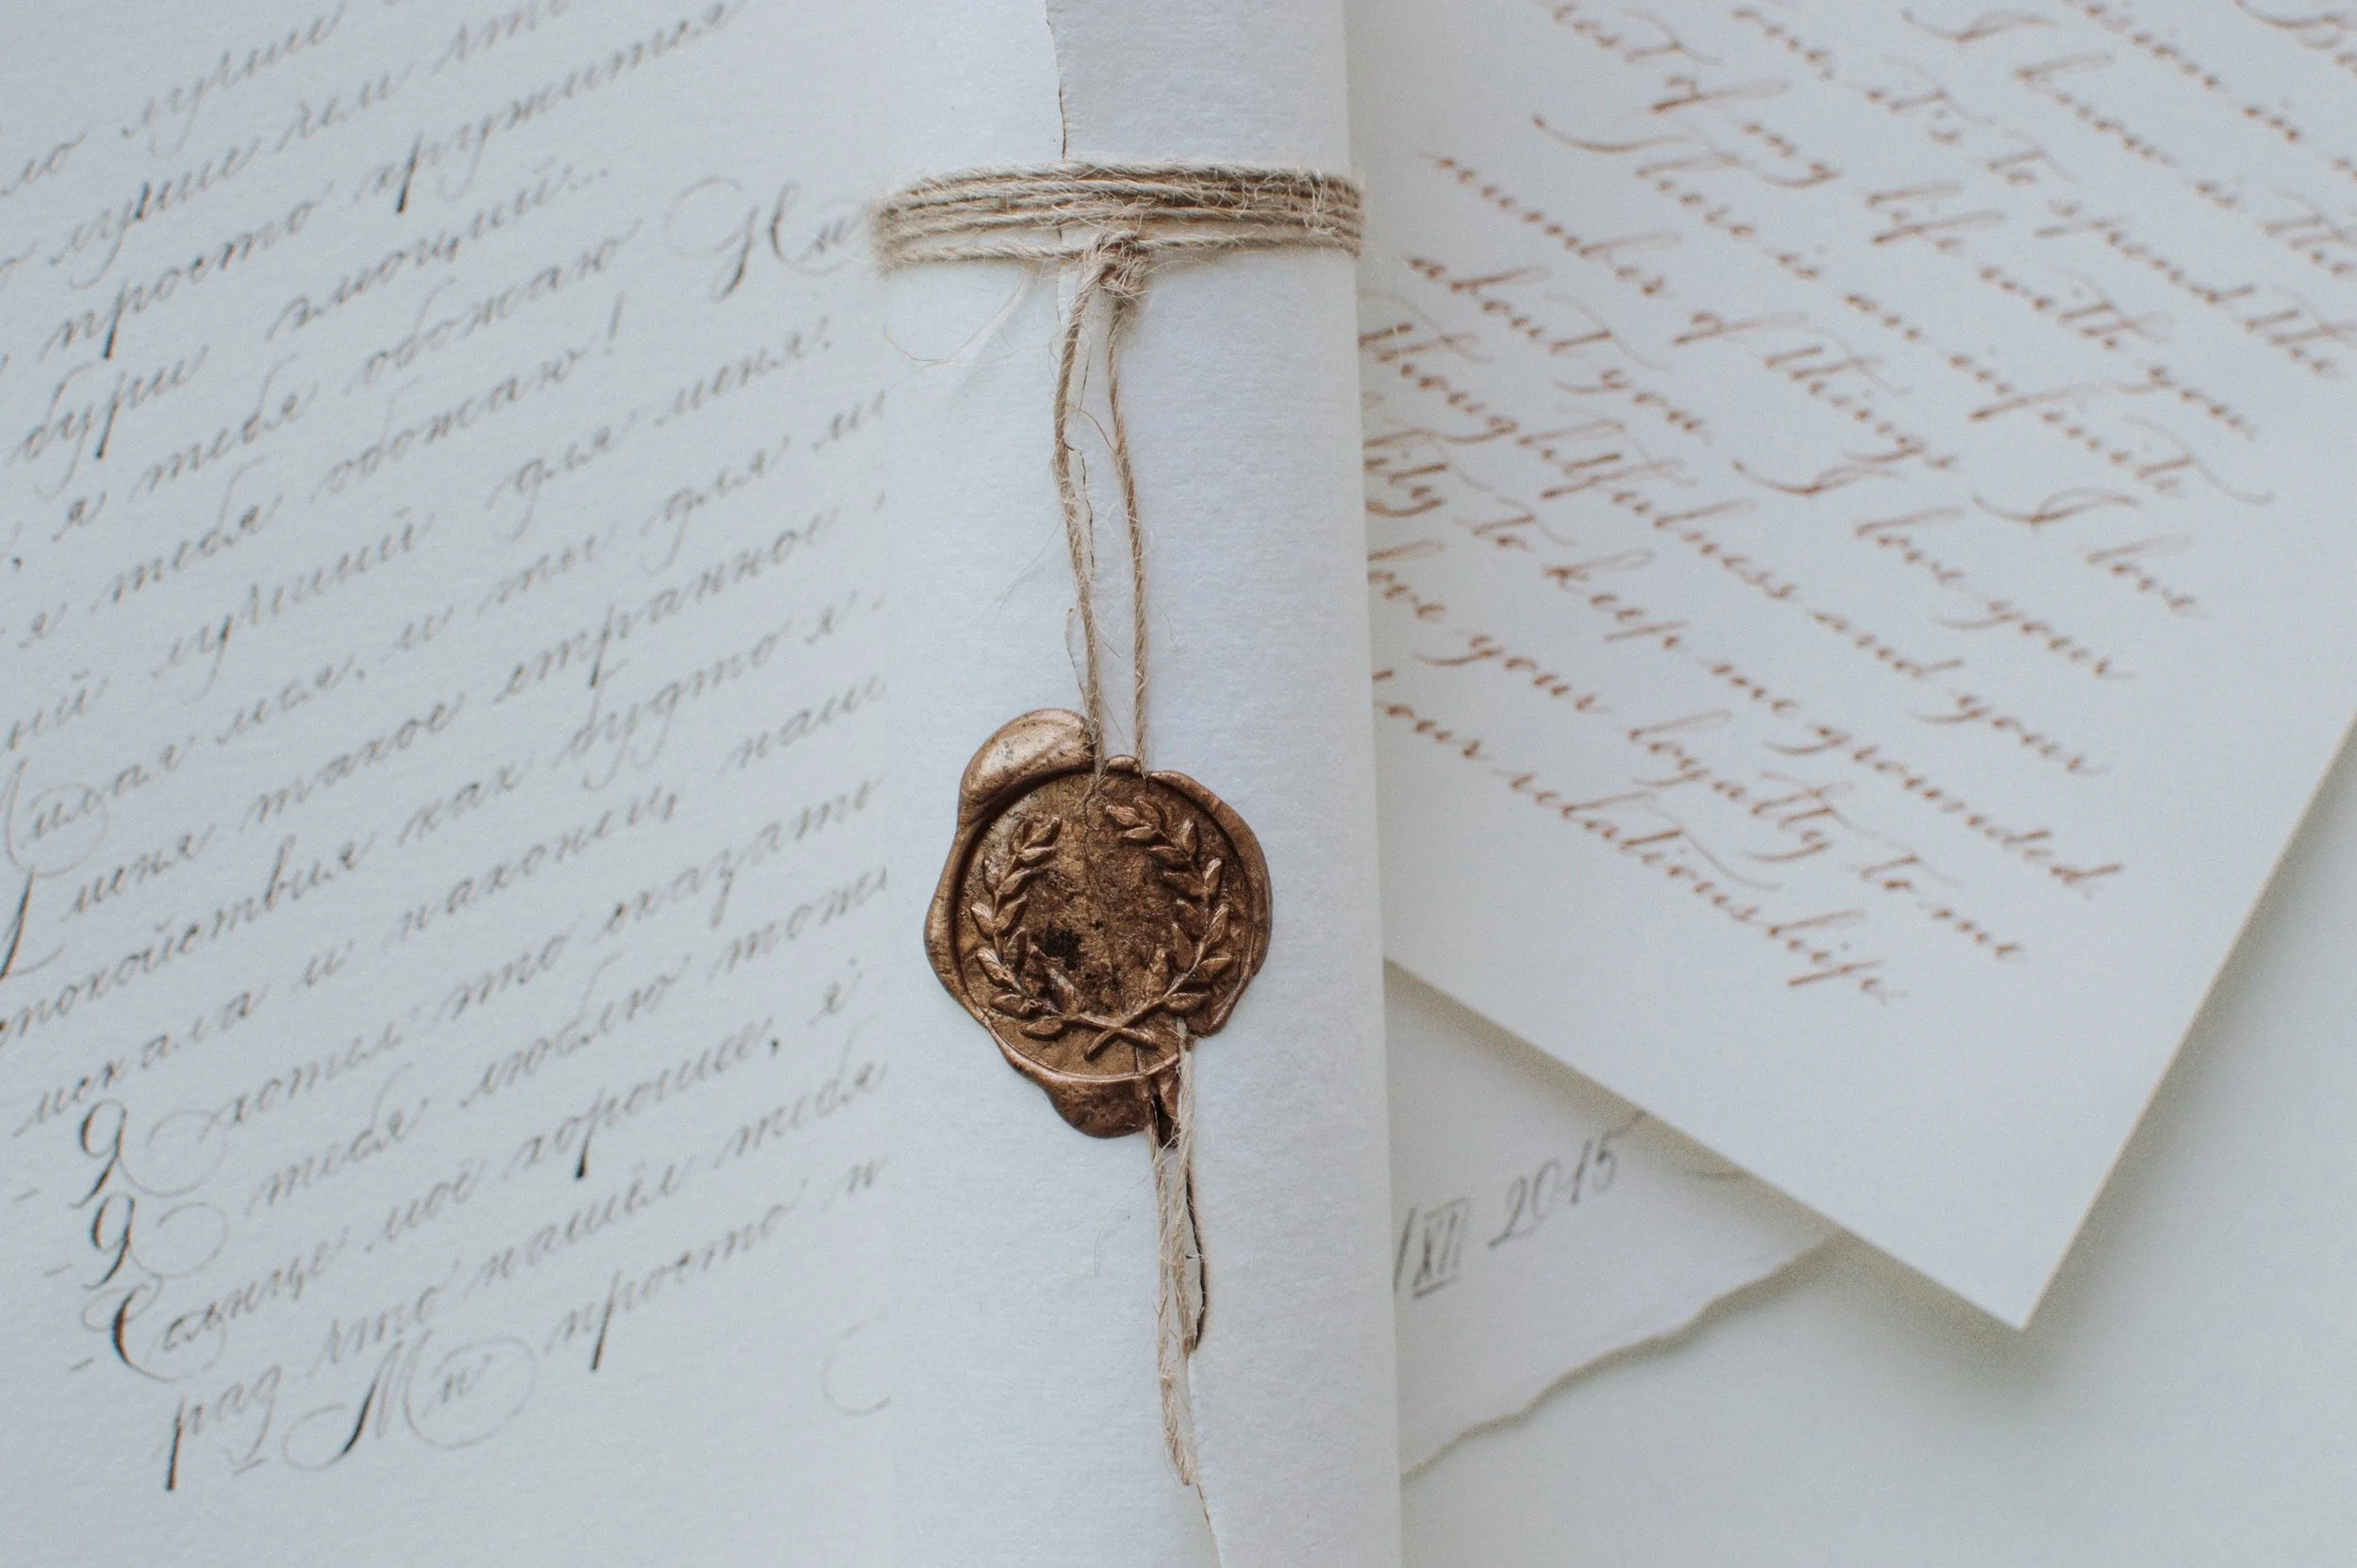 ло лучше
лучше чем что
просто кружится
бури эмоций...
, я тебя обожаю Ни
я тебя обожаю!
ный лучший для меня.
Милая моя, и ты для м
У меня такое странное
спокойствия как будто я
искала и наконец наш
- Я хотел это сказать
- Я тебя люблю тож
- Солнце моё хорошее, я
рад что нашёл тебя
Мы просто н
ision in
I know is the
one, it's to spend the
rest of my life with you.
There is an infinite
number of things I love
about you. I love your
thoughtfulness and your
lity to keep me grounded.
love your loyalty to me
our relationship
/XII 2015